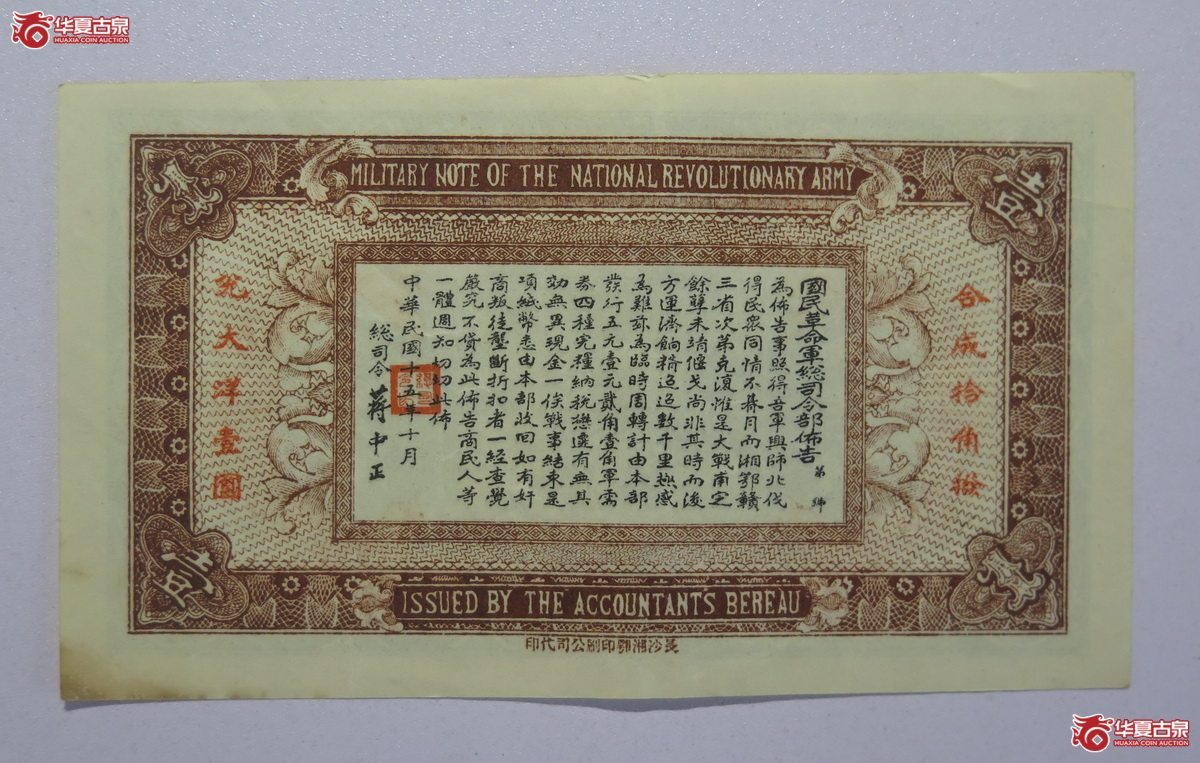 华夏古泉
HUAXIA COIN AUCTION
MILITARY NOTE OF THE NATIONAL REVOLUTIONARY ARMY
壹
合成拾角撥
兌大洋壹圓
國民革命軍總司令部佈告 第 號
為佈告事照得吾軍興師北伐
得民衆同情不朞月而湘鄂贛
三省次第克復惟是大戰甫定
餘孽未靖偃戈尚非其時而後
方運濟餉糈迢迢數千里輒感
為難茲為臨時周轉計由本部
發行五元壹元貳角壹角軍需
券四種完糧納稅懋遷有無其
効無異現金一俟戰事結束是
項紙幣悉由本部收回如有奸
商叛徒壟斷折扣者一經查覺
嚴究不貸為此佈告商民人等
一體週知切切此佈
中華民國十五年十月
總司令 蔣中正
壹
ISSUED BY THE ACCOUNTANT'S BEREAU
長沙湘鄂印刷公司代印
华夏古泉
HUAXIA COIN AUCTION